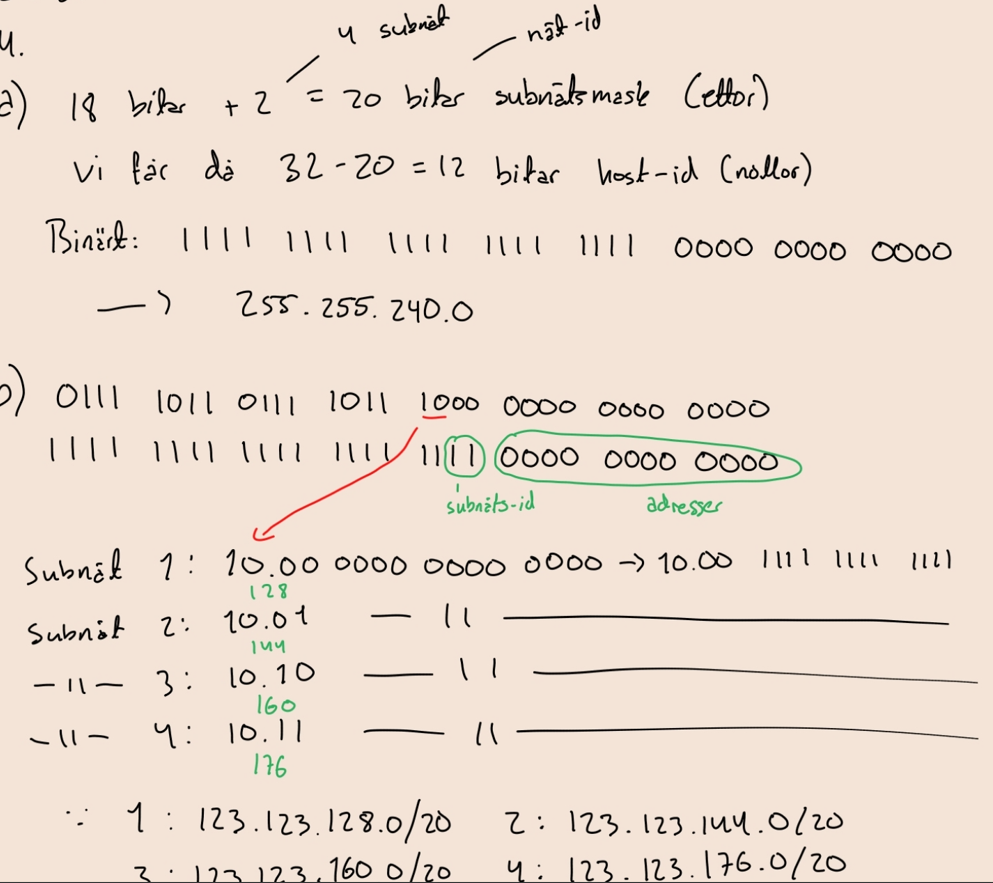 4.
4 subnät
nät-id
a) 18 bitar + 2 = 20 bitar subnätsmask (ettor)
Vi får då 32-20 = 12 bitar host-id (nollor)
Binärt: 1111 1111 1111 1111 1111 0000 0000 0000
—> 255.255.240.0
b) 0111 1011 0111 1011 1000 0000 0000 0000
1111 1111 1111 1111 1111 0000 0000 0000
subnäts-id adresser
Subnät 1: 10.00 0000 0000 0000 -> 10.00 1111 1111 1111
128
Subnät 2: 10.01 — 11 —
144
-11- 3: 10.10 — 11 —
160
-11- 4: 10.11 — 11 —
176
∵ 1: 123.123.128.0/20 2: 123.123.144.0/20
3: 123.123.160.0/20 4: 123.123.176.0/20